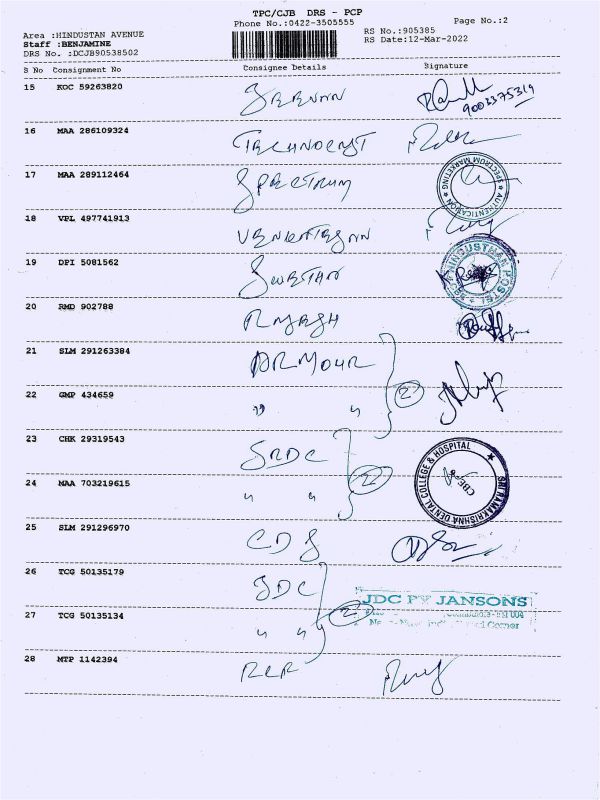 TPC/CJB DRS - PCP
Phone No.:0422-3505555
Page No.:2
Area :HINDUSTAN AVENUE
Staff :BENJAMINE
DRS No. :DCJB90538502
RS No.:905385
RS Date:12-Mar-2022
S No Consignment No Consignee Details Signature
15 KOC 59263820
9003375319
16 MAA 286109324 TECHNOCRYST
17 MAA 289112464 SPECTRUM
SPECTRUM MARKETING ★ AUTHENTICATION ★
18 VPL 497741913 VENKATESAN
19 DPI 5081562 SWETHA
HINDUSTHAN POSTEL
20 RMD 902788 RAJESH
21 SLM 291263384 ARMOUR
22 GMP 434659 " " 2
23 CHK 29319543 SRDC
24 MAA 703219615 " " 2
SRI RAMAKRISHNA DENTAL COLLEGE & HOSPITAL ★
CBE
25 SLM 291296970 CDS
26 TCG 50135179 JDC
JDC BY JANSONS
27 TCG 50135134 " " 2
Corner
28 MTP 1142394 RCR